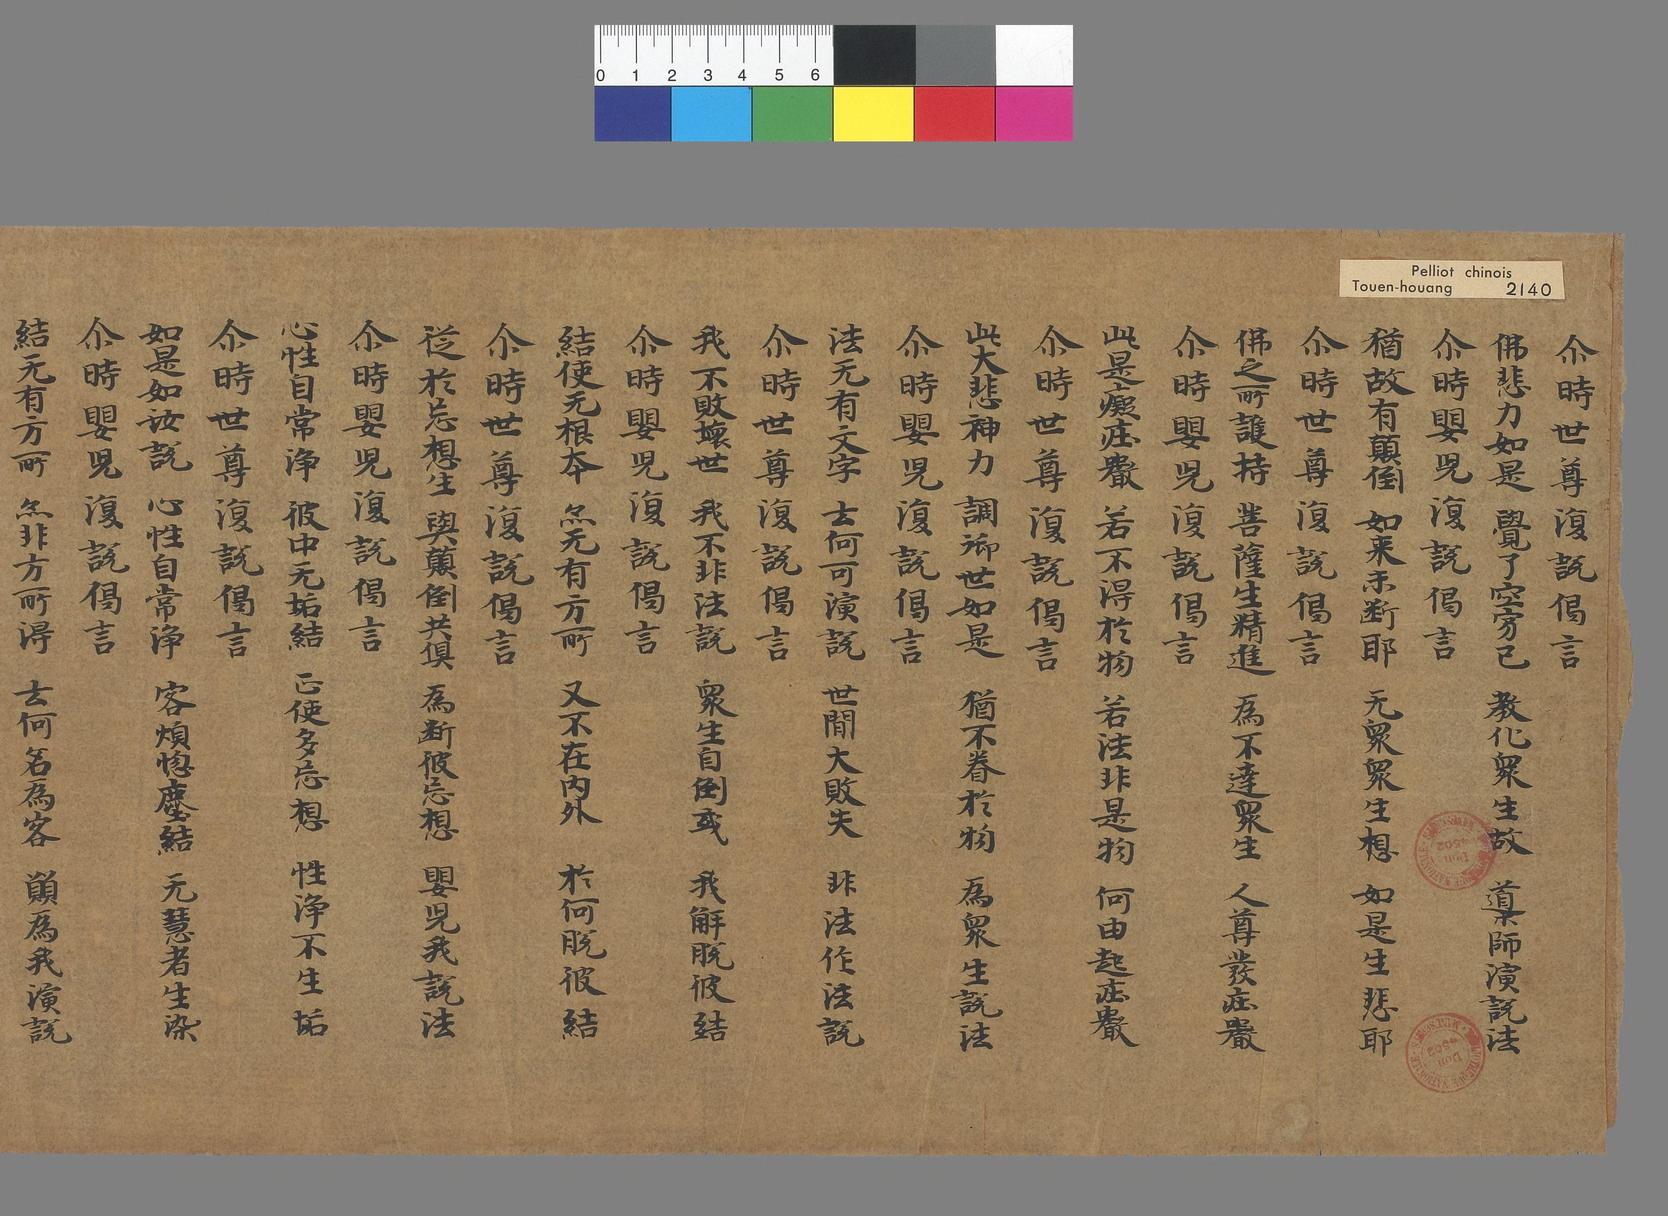 Pelliot chinois
Touen-houang 2140
0 1 2 3 4 5 6
尒時世尊復說偈言
佛悲力如是 覺了空旁已 教化衆生故 導師演說法
尒時嬰児復說偈言
猶故有顛倒 如来未断耶 无衆衆生想 如是生悲耶
尒時世尊復說偈言
佛之所護持 菩薩生精進 為不達衆生 人尊發庄嚴
尒時嬰児復說偈言
此是癡庄嚴 若不淂於物 若法非是物 何由起庄嚴
尒時世尊復說偈言
此大悲神力 調御世如是 猶不眷於物 為衆生說法
尒時嬰児復說偈言
法无有文字 云何可演說 世間大敗失 非法作法說
尒時世尊復說偈言
我不敗壞世 我不非法說 衆生自倒或 我解脫彼結
尒時嬰児復說偈言
結使无根本 亦无有方所 又不在内外 於何脫彼結
尒時世尊復說偈言
從於忘想生 與顛倒共俱 為断彼忘想 嬰児我說法
尒時嬰児復說偈言
心性自常淨 彼中无垢結 正使多忘想 性淨不生垢
尒時世尊復說偈言
如是如汝說 心性自常淨 客煩惚塵結 无慧者生染
尒時嬰児復說偈言
結无有方所 亦非方所淂 云何名為客 願為我演說